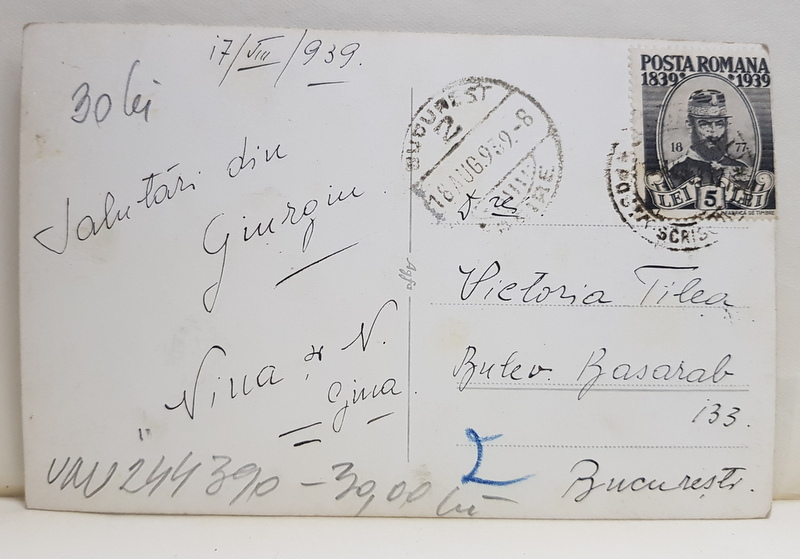 17/VIII/939.
30 lei
Salutări din
Giurgiu.
Nina și N.
Gina.
244390 - 30,00 lei
Agfa
BUCUREȘTI
2
18 AUG. 939.-8
POSTA ROMANA
1839 1939
18 77
LEI 5 LEI
FABRICA DE TIMBRE
SCRIS
Victoria Tilea
Bulev. Basarab
133.
București.